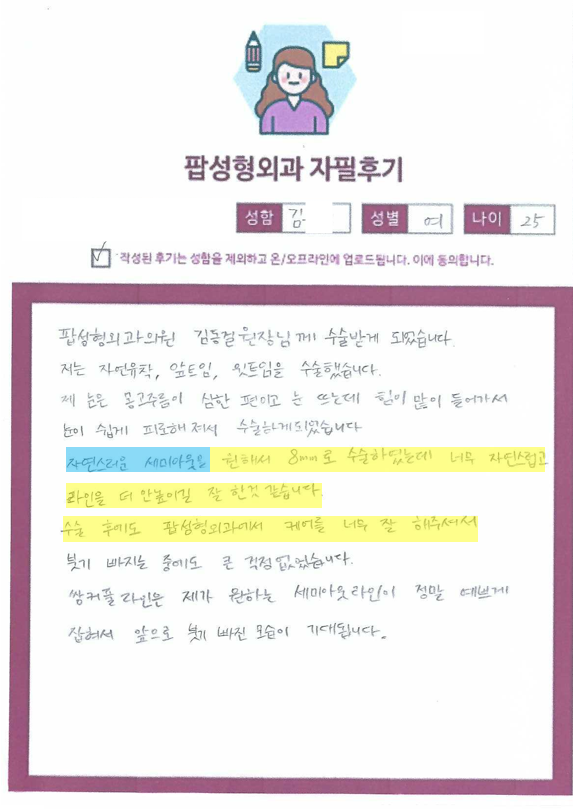 팝성형외과 자필후기
성함 김 성별 여 나이 25
작성된 후기는 성함을 제외하고 온/오프라인에 업로드됩니다. 이에 동의합니다.
팝성형외과의원 김동걸원장님께 수술받게 되었습니다.
저는 자연유착, 앞트임, 윗트임을 수술했습니다.
제 눈은 몽고주름이 심한 편이고 눈 뜨는데 힘이 많이 들어가서
눈이 쉽게 피로해져서 수술하게되었습니다
자연스러운 세미아웃을 원해서 8mm로 수술하였는데 너무 자연스럽고
라인을 더 안높이길 잘 한것 같습니다.
수술 후에도 팝성형외과에서 케어를 너무 잘 해주셔서
붓기 빠지는 중에도 큰 걱정없었습니다.
쌍커플라인은 제가 원하는 세미아웃라인이 정말 예쁘게
잡혀서 앞으로 붓기 빠진 모습이 기대됩니다.